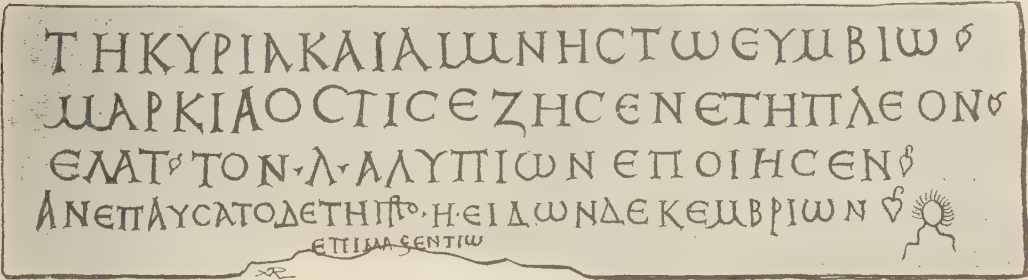 ΤΗΚΥΡΙΑΚΑΙΑΙΜΝΗCΤΩΕΥΜΒΙΩ
ΜΑΡΚΙΑΟCΤΙCΕΖΗCΕΝΕΤΗΠΛΕΟΝ
ΕΛΑΤ ΤΟΝ·Λ·ΑΛΥΠΙΩΝ ΕΠΟΙΗCΕΝ
ΑΝΕΠΑΥCΑΤΟΔΕΤΗΠΡΟ·Η·ΕΙΔΩΝΔΕΚΕΜΒΡΙΩΝ
ΕΠΙΜΑϚΕΝΤΙΩ